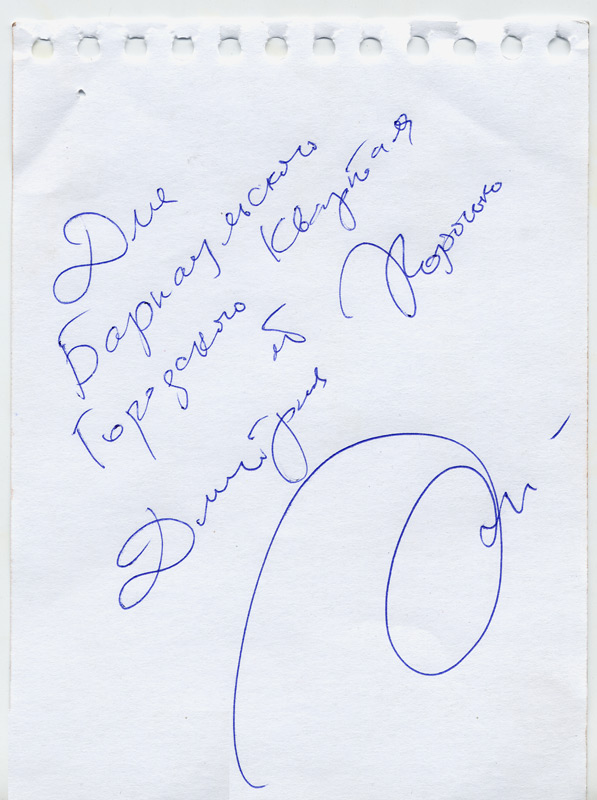 Для
Барнаульского
Городского Квартала
от Хоронько
Дмитрия